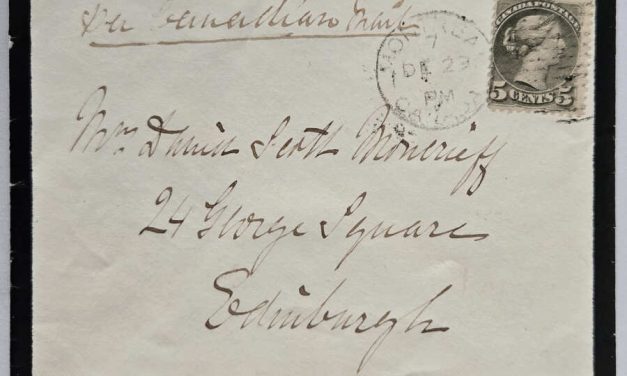 per Canadian Mail
CANADA POSTAGE
5 CENTS 5
MONTREAL
7
DE 23
PM
CANADA
Mrs David Scott Moncrieff
24 George Square
Edinburgh